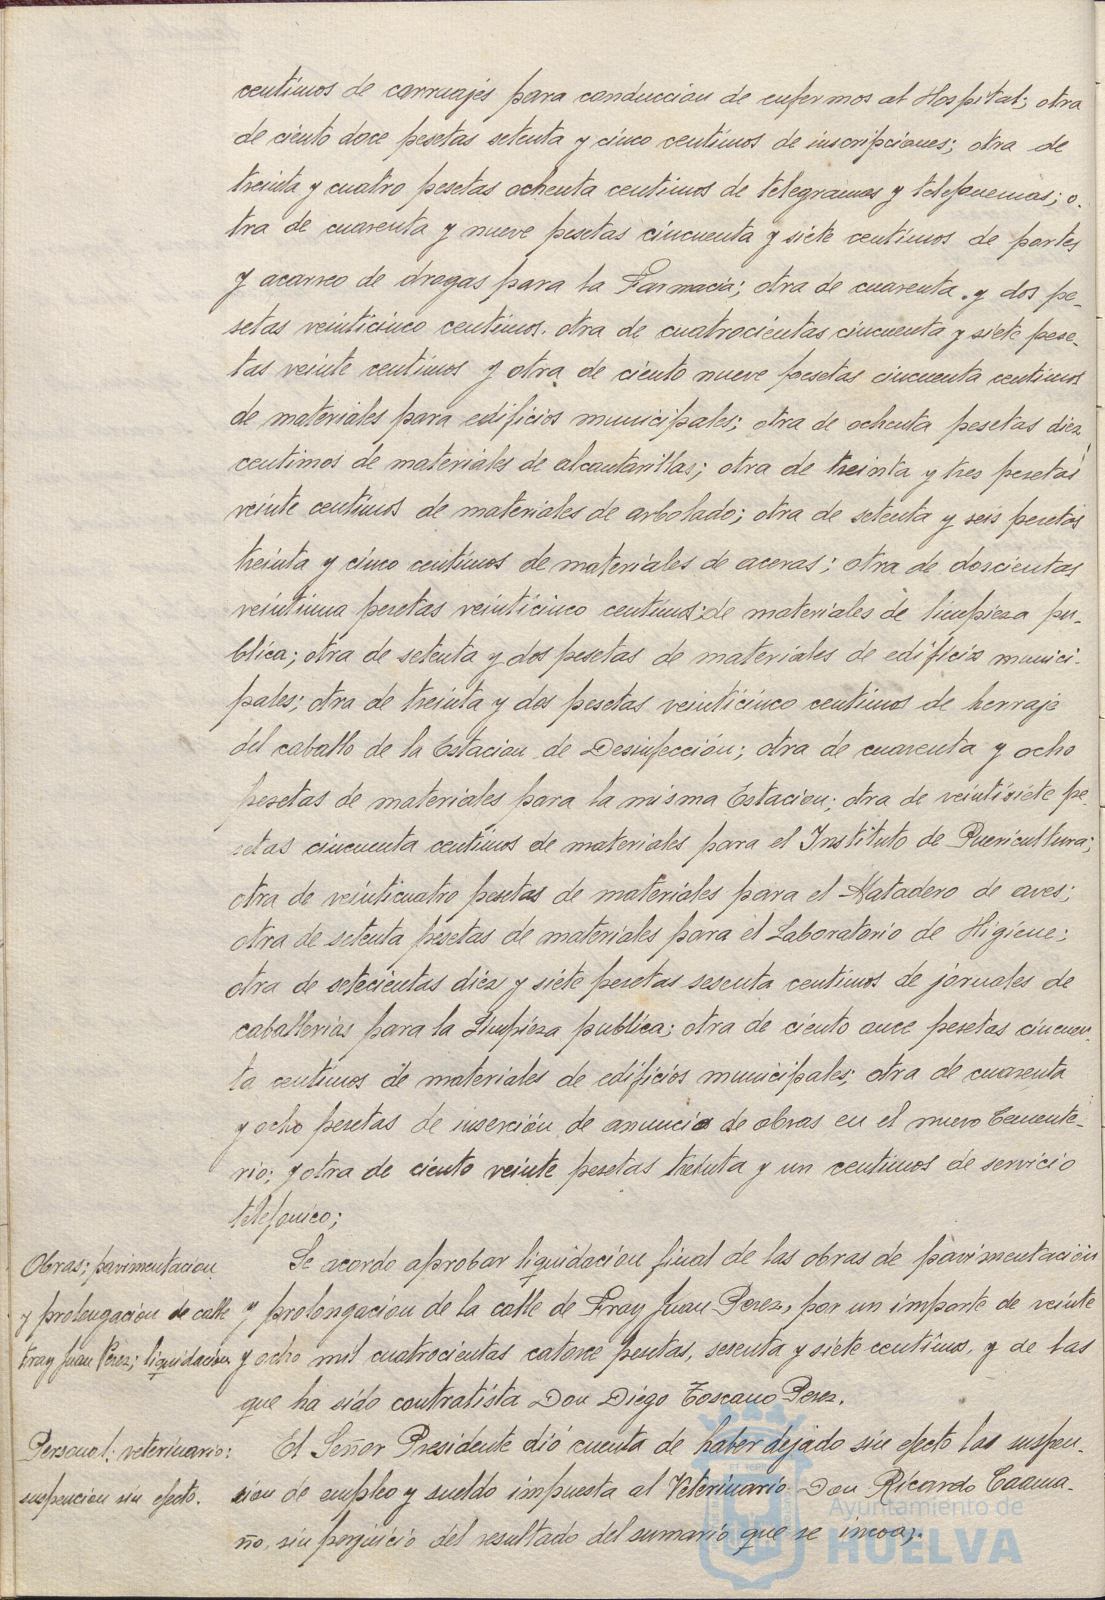 centimos de carruajes para conduccion de enfermos al Hospital; otra
de ciento doce pesetas setenta y cinco centimos de inscripciones; otra de
treinta y cuatro pesetas ochenta centimos de telegramas y telefonemas; o-
tra de cuarenta y nueve pesetas cincuenta y siete centimos de portes
y acarreo de drogas para la Farmacia; otra de cuarenta y dos pe-
setas veinticinco centimos, otra de cuatrocientas cincuenta y siete pese-
tas veinte centimos y otra de ciento nueve pesetas cincuenta centimos
de materiales para edificios municipales; otra de ochenta pesetas diez
centimos de materiales de alcantarillas; otra de treinta y tres pesetas
veinte centimos de materiales de arbolado; otra de setenta y seis pesetas
treinta y cinco centimos de materiales de aceras; otra de doscientas
veintiuna pesetas veinticinco centimos; de materiales de limpieza pu-
blica; otra de setenta y dos pesetas de materiales de edificios munici-
pales; otra de treinta y dos pesetas veinticinco centimos de herraje
del caballo de la Estacion de Desinfección; otra de cuarenta y ocho
pesetas de materiales para la misma Estacion; otra de veintisiete pe-
setas cincuenta centimos de materiales para el Instituto de Puericultura;
otra de veinticuatro pesetas de materiales para el Matadero de aves;
otra de setenta pesetas de materiales para el Laboratorio de Higiene;
otra de setecientas diez y siete pesetas sesenta centimos de jornales de
caballerias para la Limpieza publica; otra de ciento once pesetas cincuen-
ta centimos de materiales de edificios municipales; otra de cuarenta
y ocho pesetas de inserción de anuncio de obras en el nuevo Cemente-
rio; y otra de ciento veinte pesetas treinta y un centimos de servicio
telefonico;
Obras; pavimentacion
y prolongacion de calle
Fray Juan Perez; liquidacion
Se acordo aprobar liquidacion final de las obras de pavimentación
y prolongacion de la calle de Fray Juan Perez, por un importe de veinte
y ocho mil cuatrocientas catorce pesetas, sesenta y siete centimos, y de las
que ha sido contratista Don Diego Toscano Perez.
Personal: veterinario:
suspencion sin efecto.
El Señor Presidente dió cuenta de haber dejado sin efecto las suspen-
sion de empleo y sueldo impuesta al Veterinario Don Ricardo Caama-
ño, sin perjuicio del resultado del sumario que se incoa;.
Ayuntamiento de
HUELVA